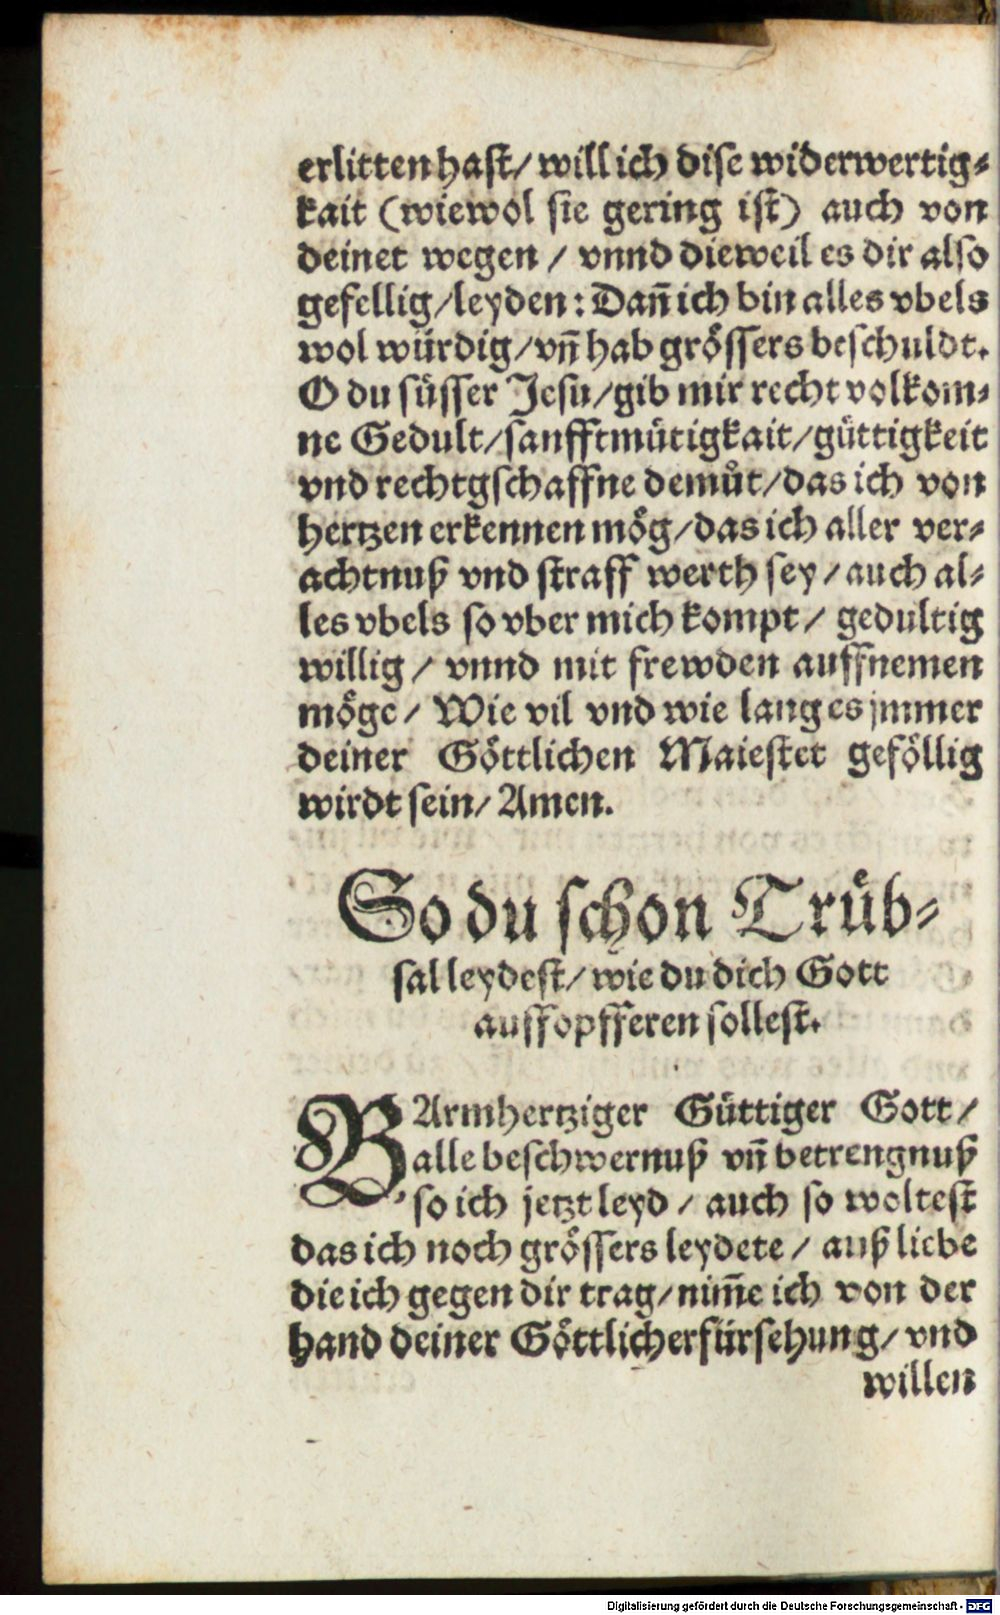 erlitten hast/ will ich dise widerwertig⸗
kait (wiewol sie gering ist) auch von
deinet wegen / vnnd dieweil es dir also
gefellig/leyden: Dañ ich bin alles vbels
wol würdig/vñ hab grössers beschuldt.
O du süsser Jesu/gib mir recht volkom⸗
ne Gedult/sanfftmütigkait/güttigkeit
vnd rechtgschaffne demůt/das ich von
hertzen erkennen mög/das ich aller ver⸗
achtnuß vnd straff werth sey/auch al⸗
les vbels so vber mich kompt/ gedultig
willig/ vnnd mit frewden auffnemen
möge/ Wie vil vnd wie lang es jmmer
deiner Göttlichen Maiestet geföllig
wirdt sein/ Amen.
So du schon Trüb⸗
sal leydest/ wie du dich Gott
auffopfferen sollest.
BArmhertziger Güttiger Gott/
alle beschwernuß vñ betrengnuß
so ich jetzt leyd / auch so woltest
das ich noch grössers leydete / auß liebe
die ich gegen dir trag/nim̄e ich von der
hand deiner Göttlicher fürsehung/ vnd
willen
Digitalisierung gefördert durch die Deutsche Forschungsgemeinschaft - DFG